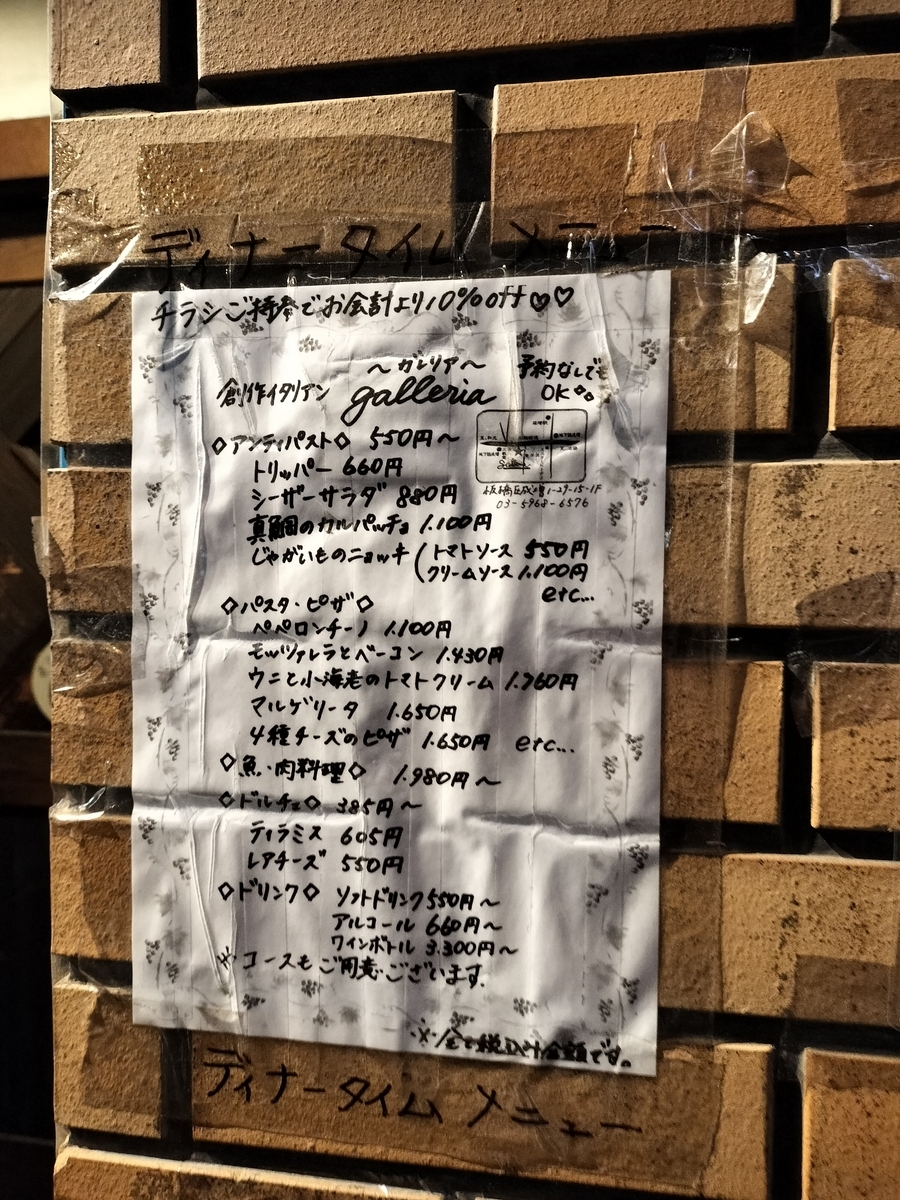 ディナータイム メニュー
チラシご持参でお会計より10%off♡♡
～ガレリア～
創作イタリアン galleria
予約なしでも
OK
◇アンティパスト◇ 550円～
トリッパー 660円
シーザーサラダ 880円
真鯛のカルパッチョ 1.100円
じゃがいものニョッキ(トマトソース 550円
クリームソース 1.100円
etc...
板橋区成増1-29-15-1F
03-5968-6576
◇パスタ・ピザ◇
ペペロンチーノ 1.100円
モッツァレラとベーコン 1.430円
ウニと小海老のトマトクリーム 1.760円
マルゲリータ 1.650円
4種チーズのピザ 1.650円 etc...
◇魚・肉料理◇ 1.980円～
◇ドルチェ◇ 385円～
ティラミス 605円
レアチーズ 550円
◇ドリンク◇ ソフトドリンク550円～
アルコール 660円～
ワインボトル 3.300円～
※コースもご用意ございます。
※全て税込み金額です。
ディナータイム メニュー